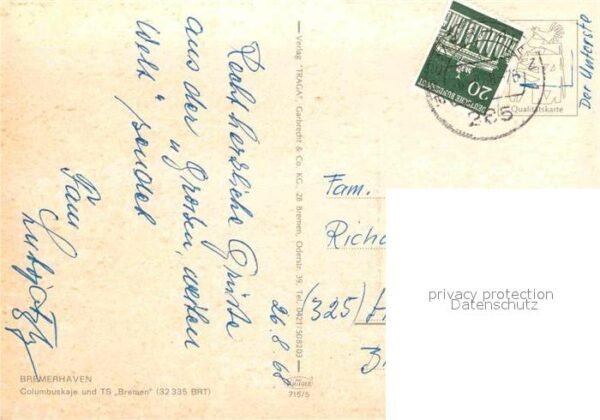 Recht herzliche Grüße
aus der „großen, weiten
Welt" sendet
Fam.
26.8.68
Fam.
(325)
BREMERHAVEN
Columbuskaje und TS „Bremen" (32 335 BRT)
Verlag "TRAGA", Garbrecht & Co. KG., 28 Bremen, Oderstr. 39, Tel. 0421/508203
715/5
DEUTSCHE BUNDESPOST
20
285
Qualitätskarte
privacy protection
Datenschutz